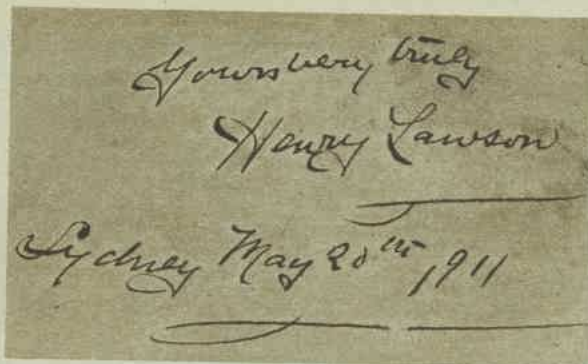 Yours very truly
Henry Lawson
Sydney May 20th 1911